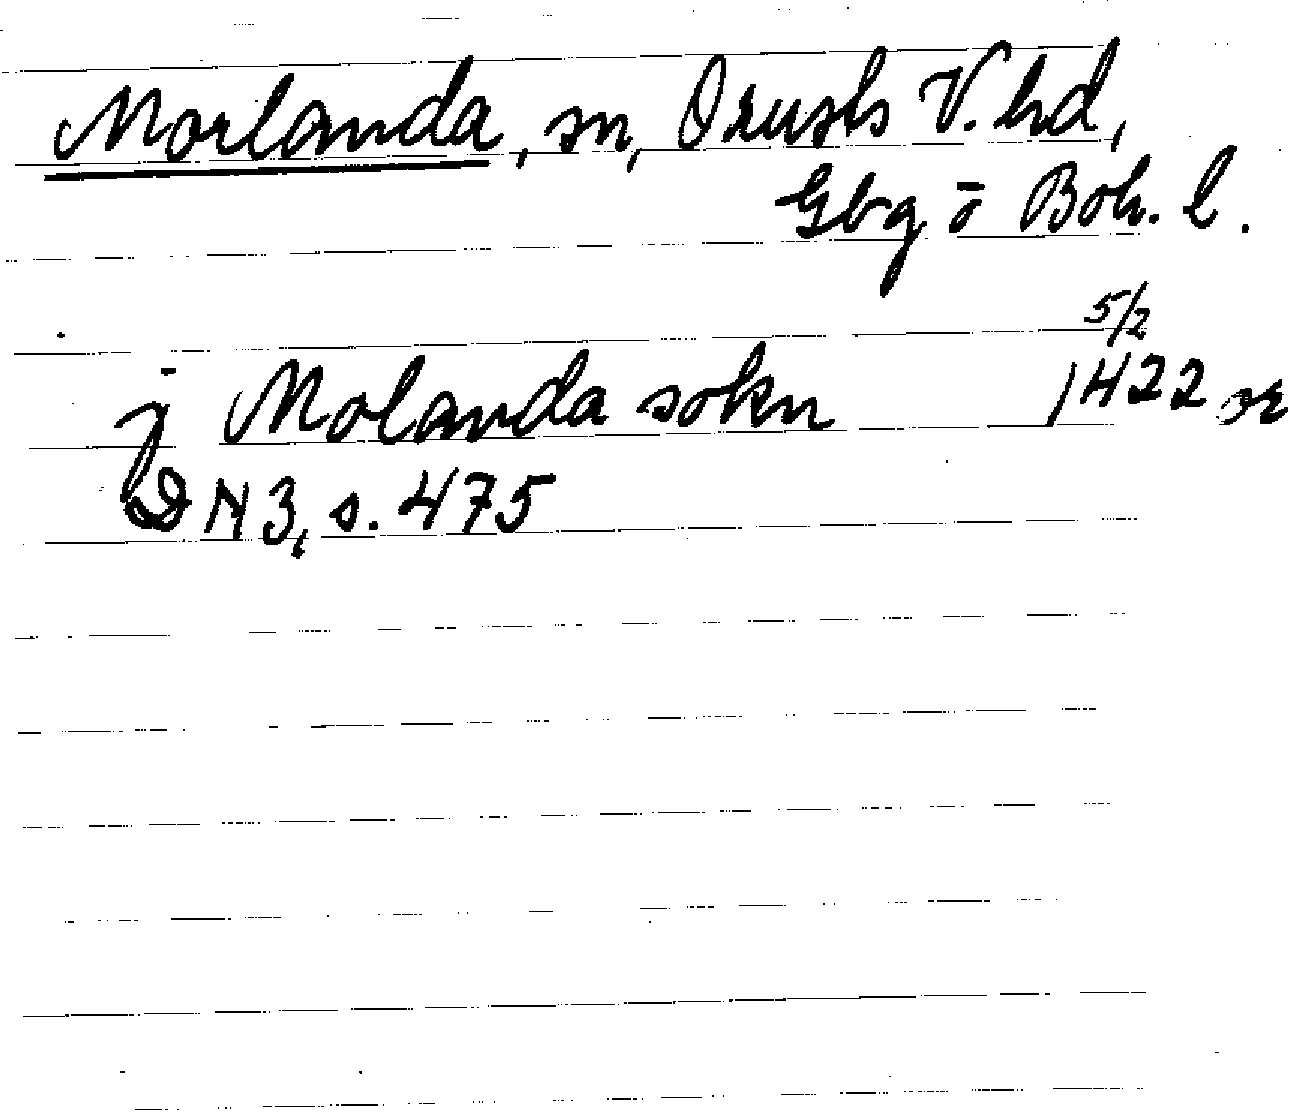 Morlanda, sn, Orusts V. hd,
Gbg ō Boh. l.
5/2
j Molanda sokn 1422 or
DN 3, s. 475